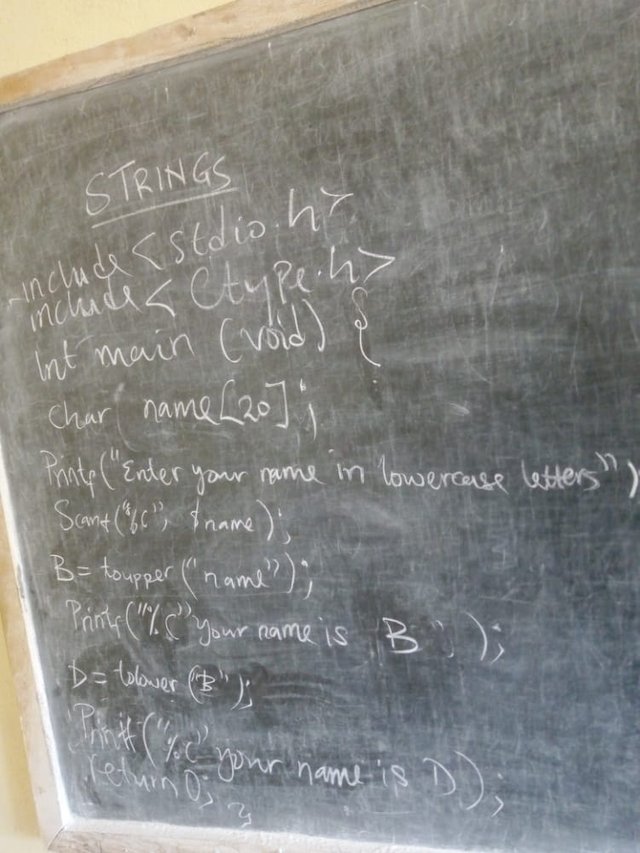 STRINGS
include <stdio.h>
include < Ctype.h>
Int main (void) {
char name[20];
Printf("Enter your name in lowercase letters")
Scanf("%C", &name);
B= toupper("name");
Printf("%C" your name is B");
D= tolower ("B");
Printf("%C" your name is D);
return 0; }